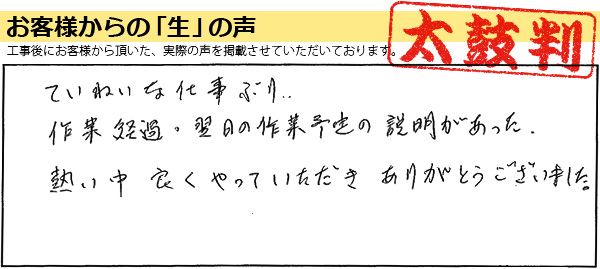 お客様からの「生」の声
工事後にお客様から頂いた、実際の声を掲載させていただいております。
太鼓判
ていねいな仕事ぶり..
作業経過・翌日の作業予定の説明があった.
熱い中 良くやっていただき ありがとうございました。